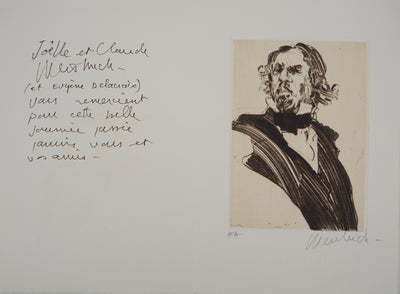 Joëlle et Claude
Weisbuch -
(et Eugène Delacroix)
vous remercient
pour cette belle
journée passée
parmis vous et
vos amis -
EA
Weisbuch -